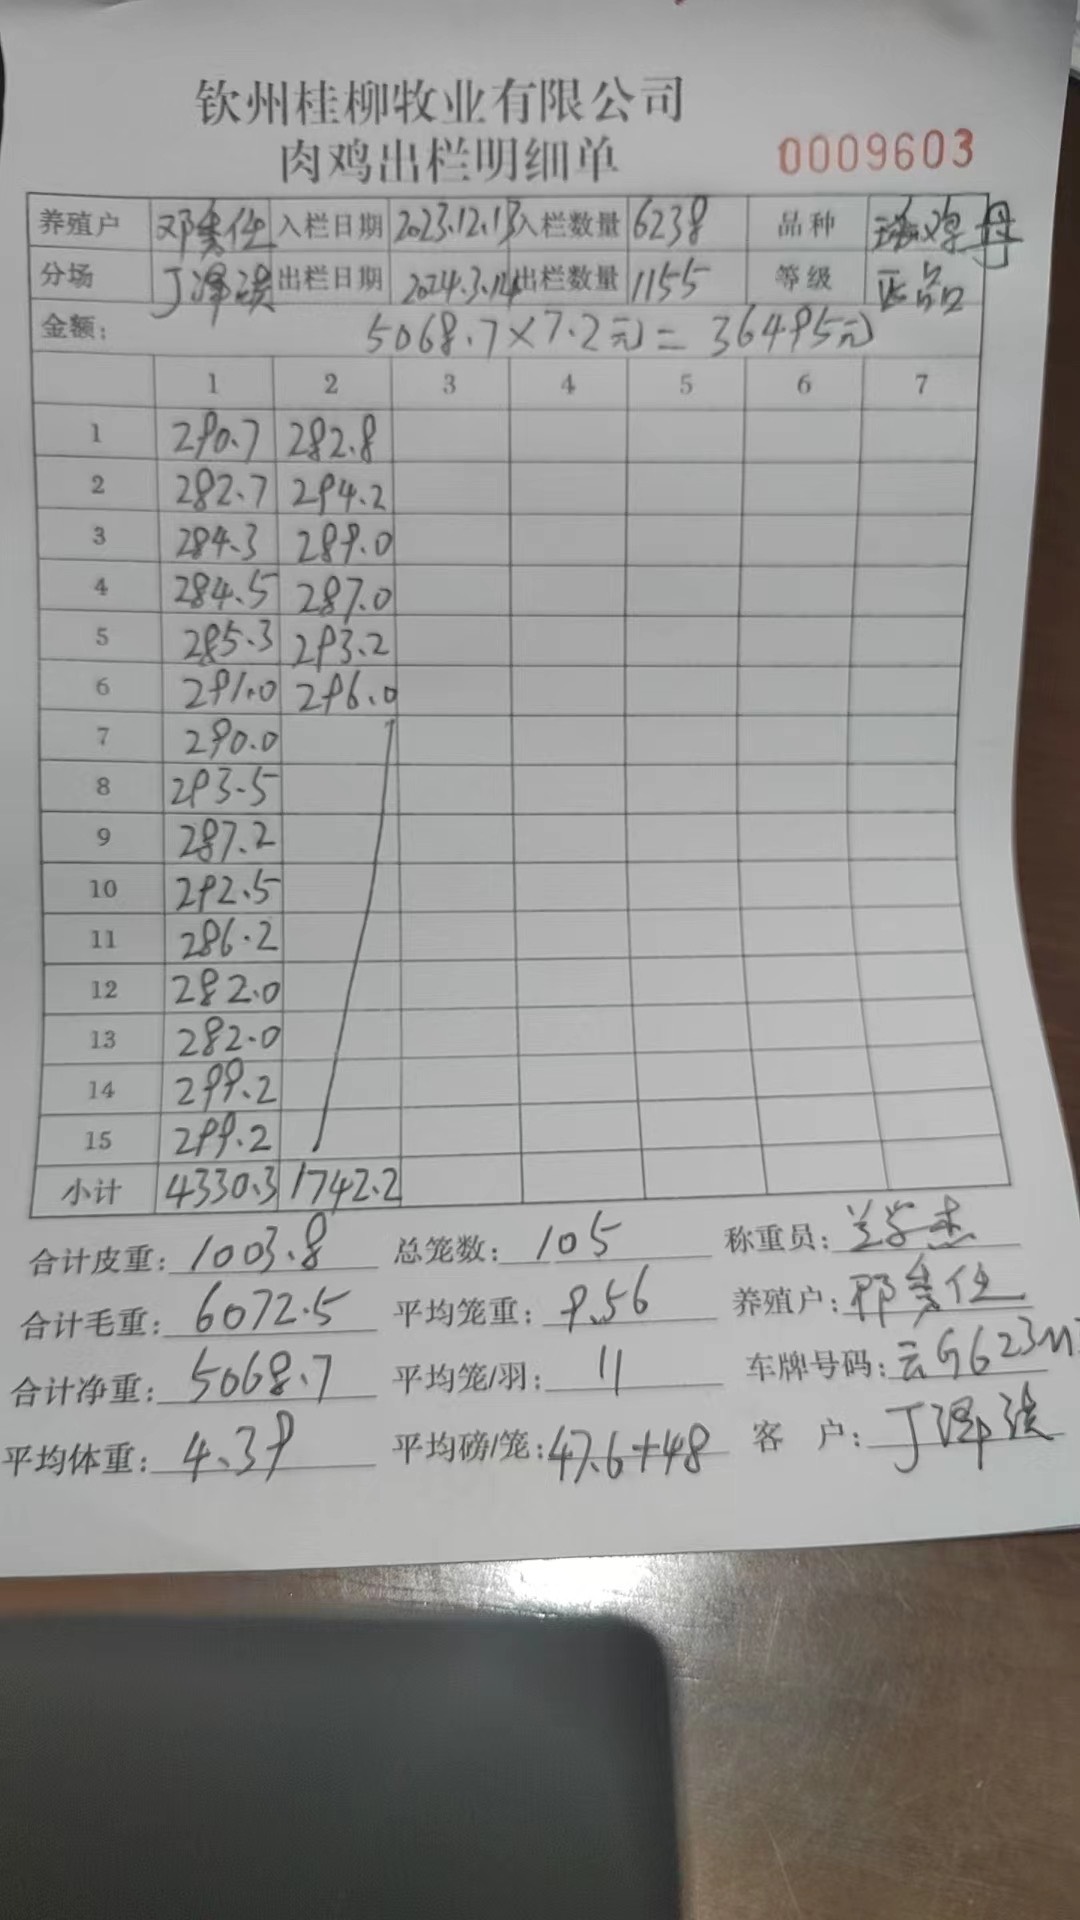 钦州桂柳牧业有限公司
肉鸡出栏明细单 0009603
养殖户 邓秀仕 入栏日期 2023.12.13 入栏数量 6238 品种
分场 丁泽洪 出栏日期 2024.3.14 出栏数量 1155 等级 正品
金额: 5068.7×7.2元=36495元
1 2 3 4 5 6 7
1 290.7 282.8
2 282.7 294.2
3 284.3 289.0
4 284.5 287.0
5 285.3 293.2
6 291.0 296.0
7 290.0
8 293.5
9 287.2
10 292.5
11 286.2
12 282.0
13 282.0
14 299.2
15 299.2
小计 4330.3 1742.2
合计皮重: 1003.8 总笼数: 105 称重员: 兰学杰
合计毛重: 6072.5 平均笼重: 9.56 养殖户: 邓秀仕
合计净重: 5068.7 平均笼/羽: 11 车牌号码: 云G623M
平均体重: 4.39 平均磅/笼: 47.6+48 客户: 丁泽洪